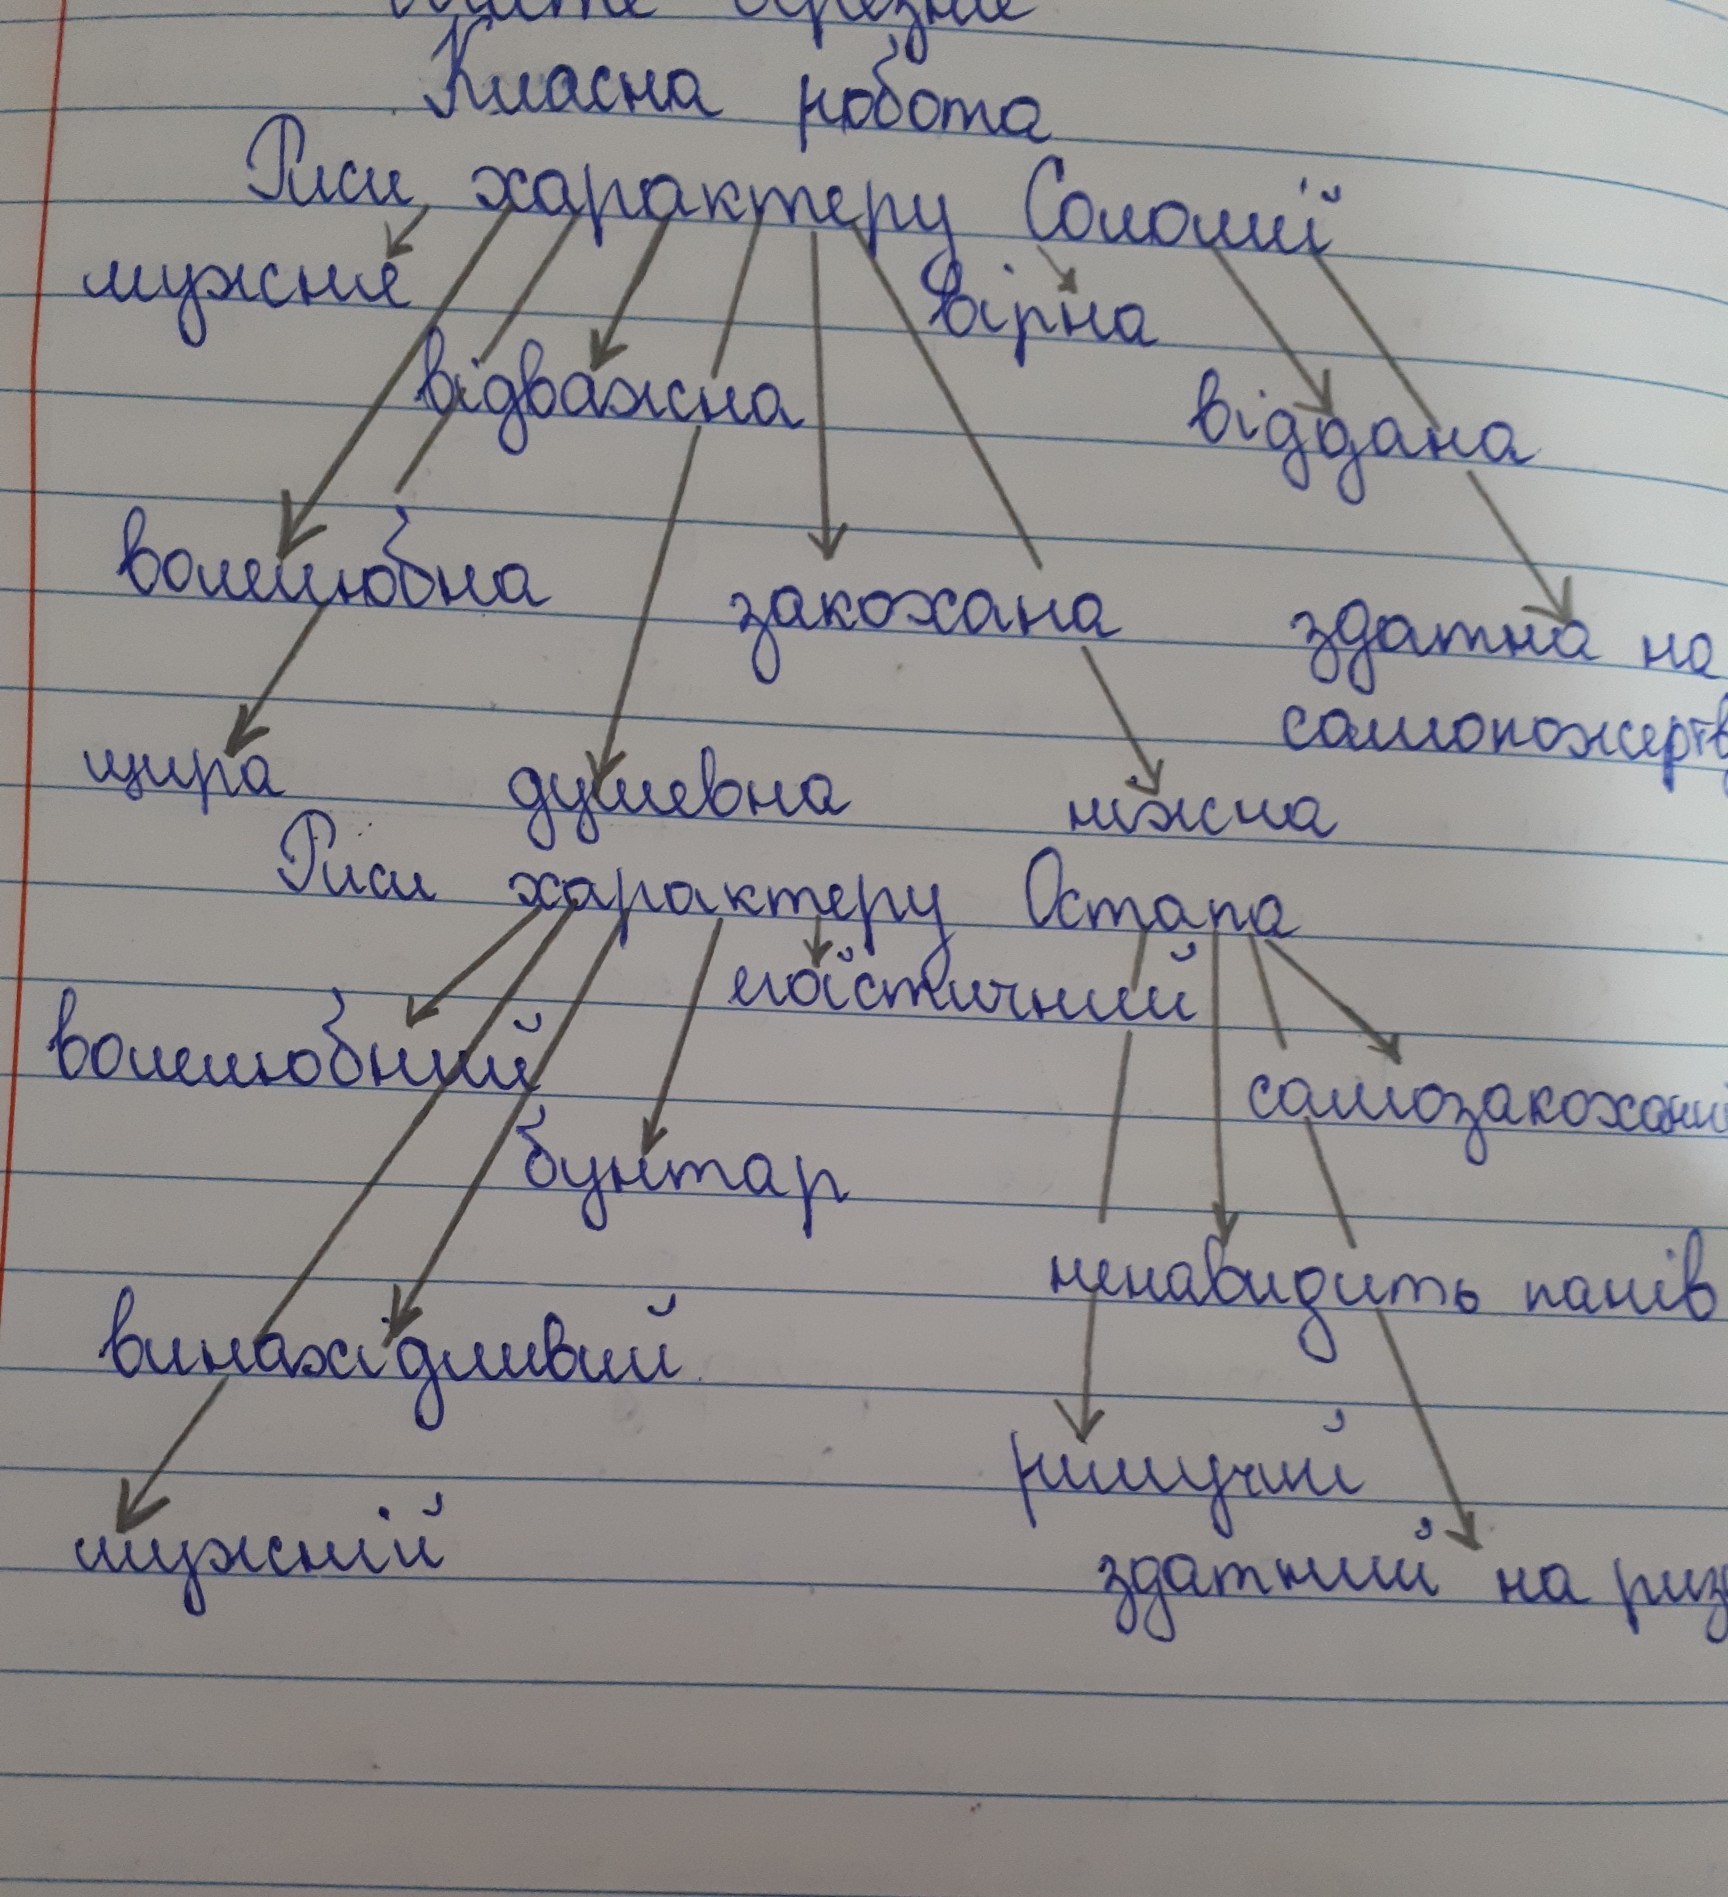 березня
Класна робота
Риси характеру Соломії
мужня вірна
відважна віддана
волелюбна закохана здатна на
самопожертв
щира душевна ніжна
Риси характеру Остапа
егоїстичний
волелюбний самозакохани
бунтар
ненавидить панів
винахідливий
рішучий
мужній здатний на риз